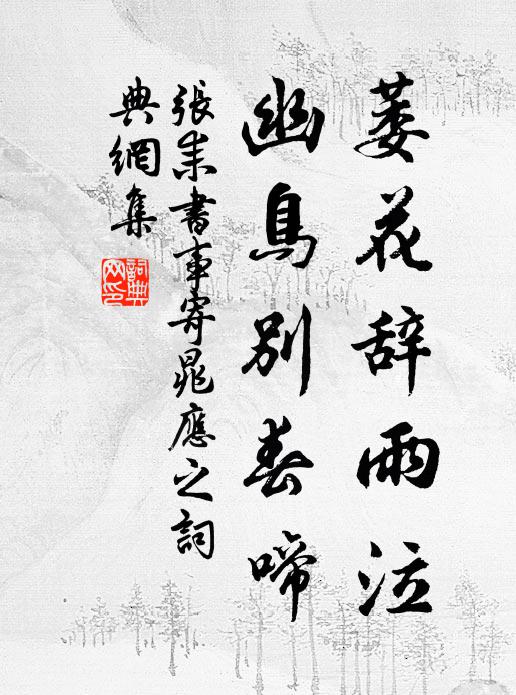 萎花辞雨泣
幽鳥别春啼
張耒書事寄晁應之詞
典網集
詞典
网印